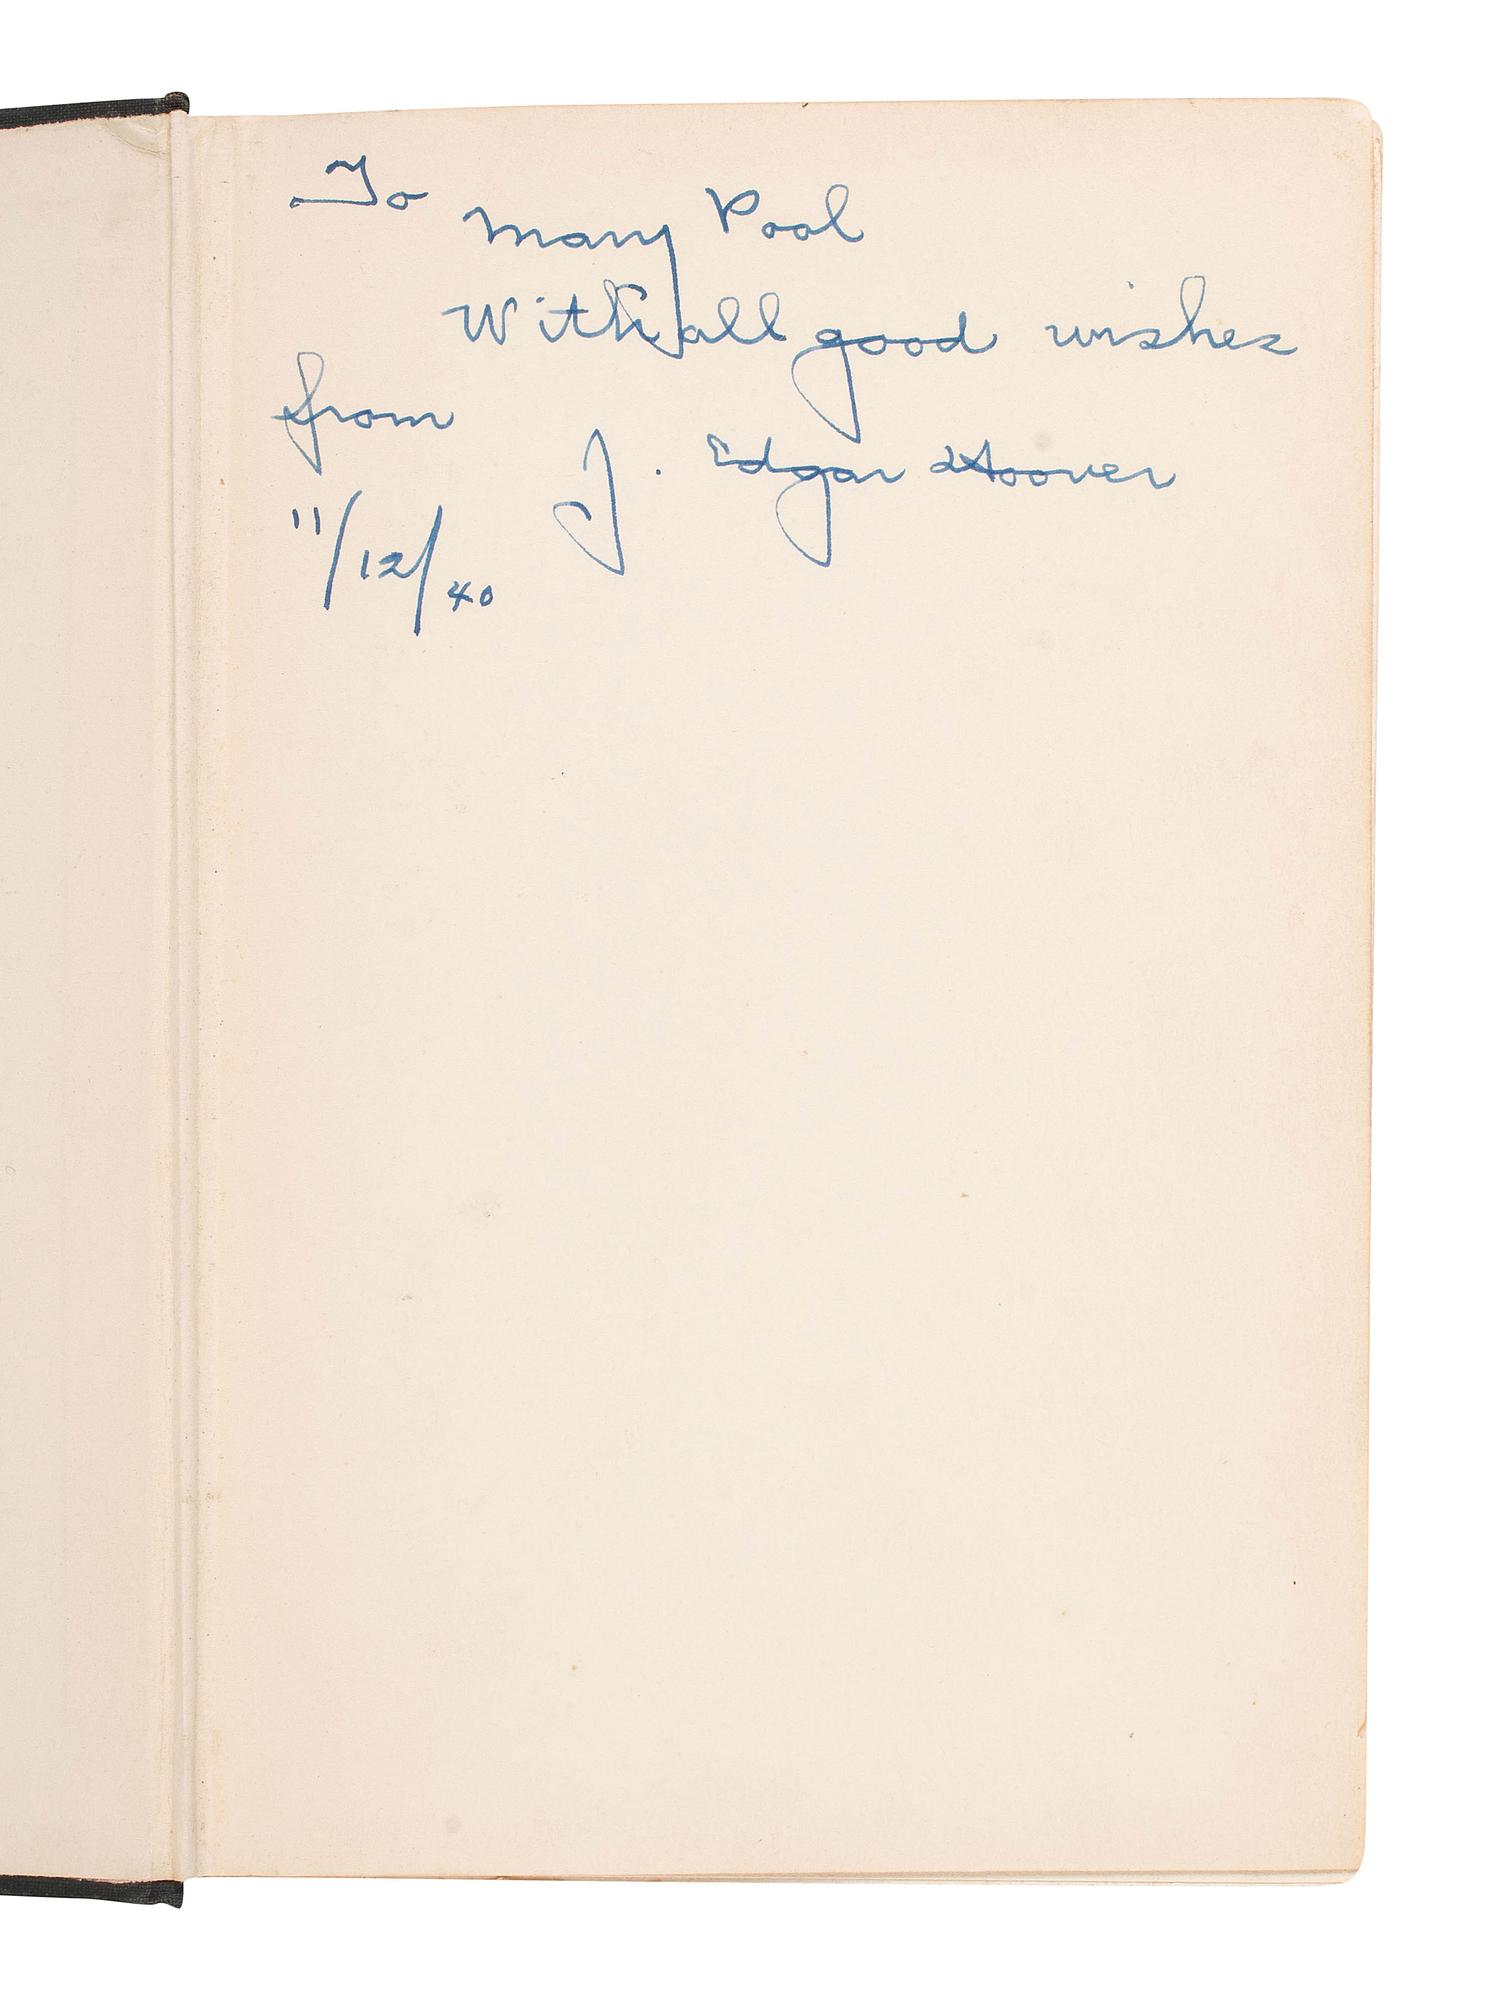 To
Mary Pool
With all good wishes
from
J. Edgar Hoover
11/12/40